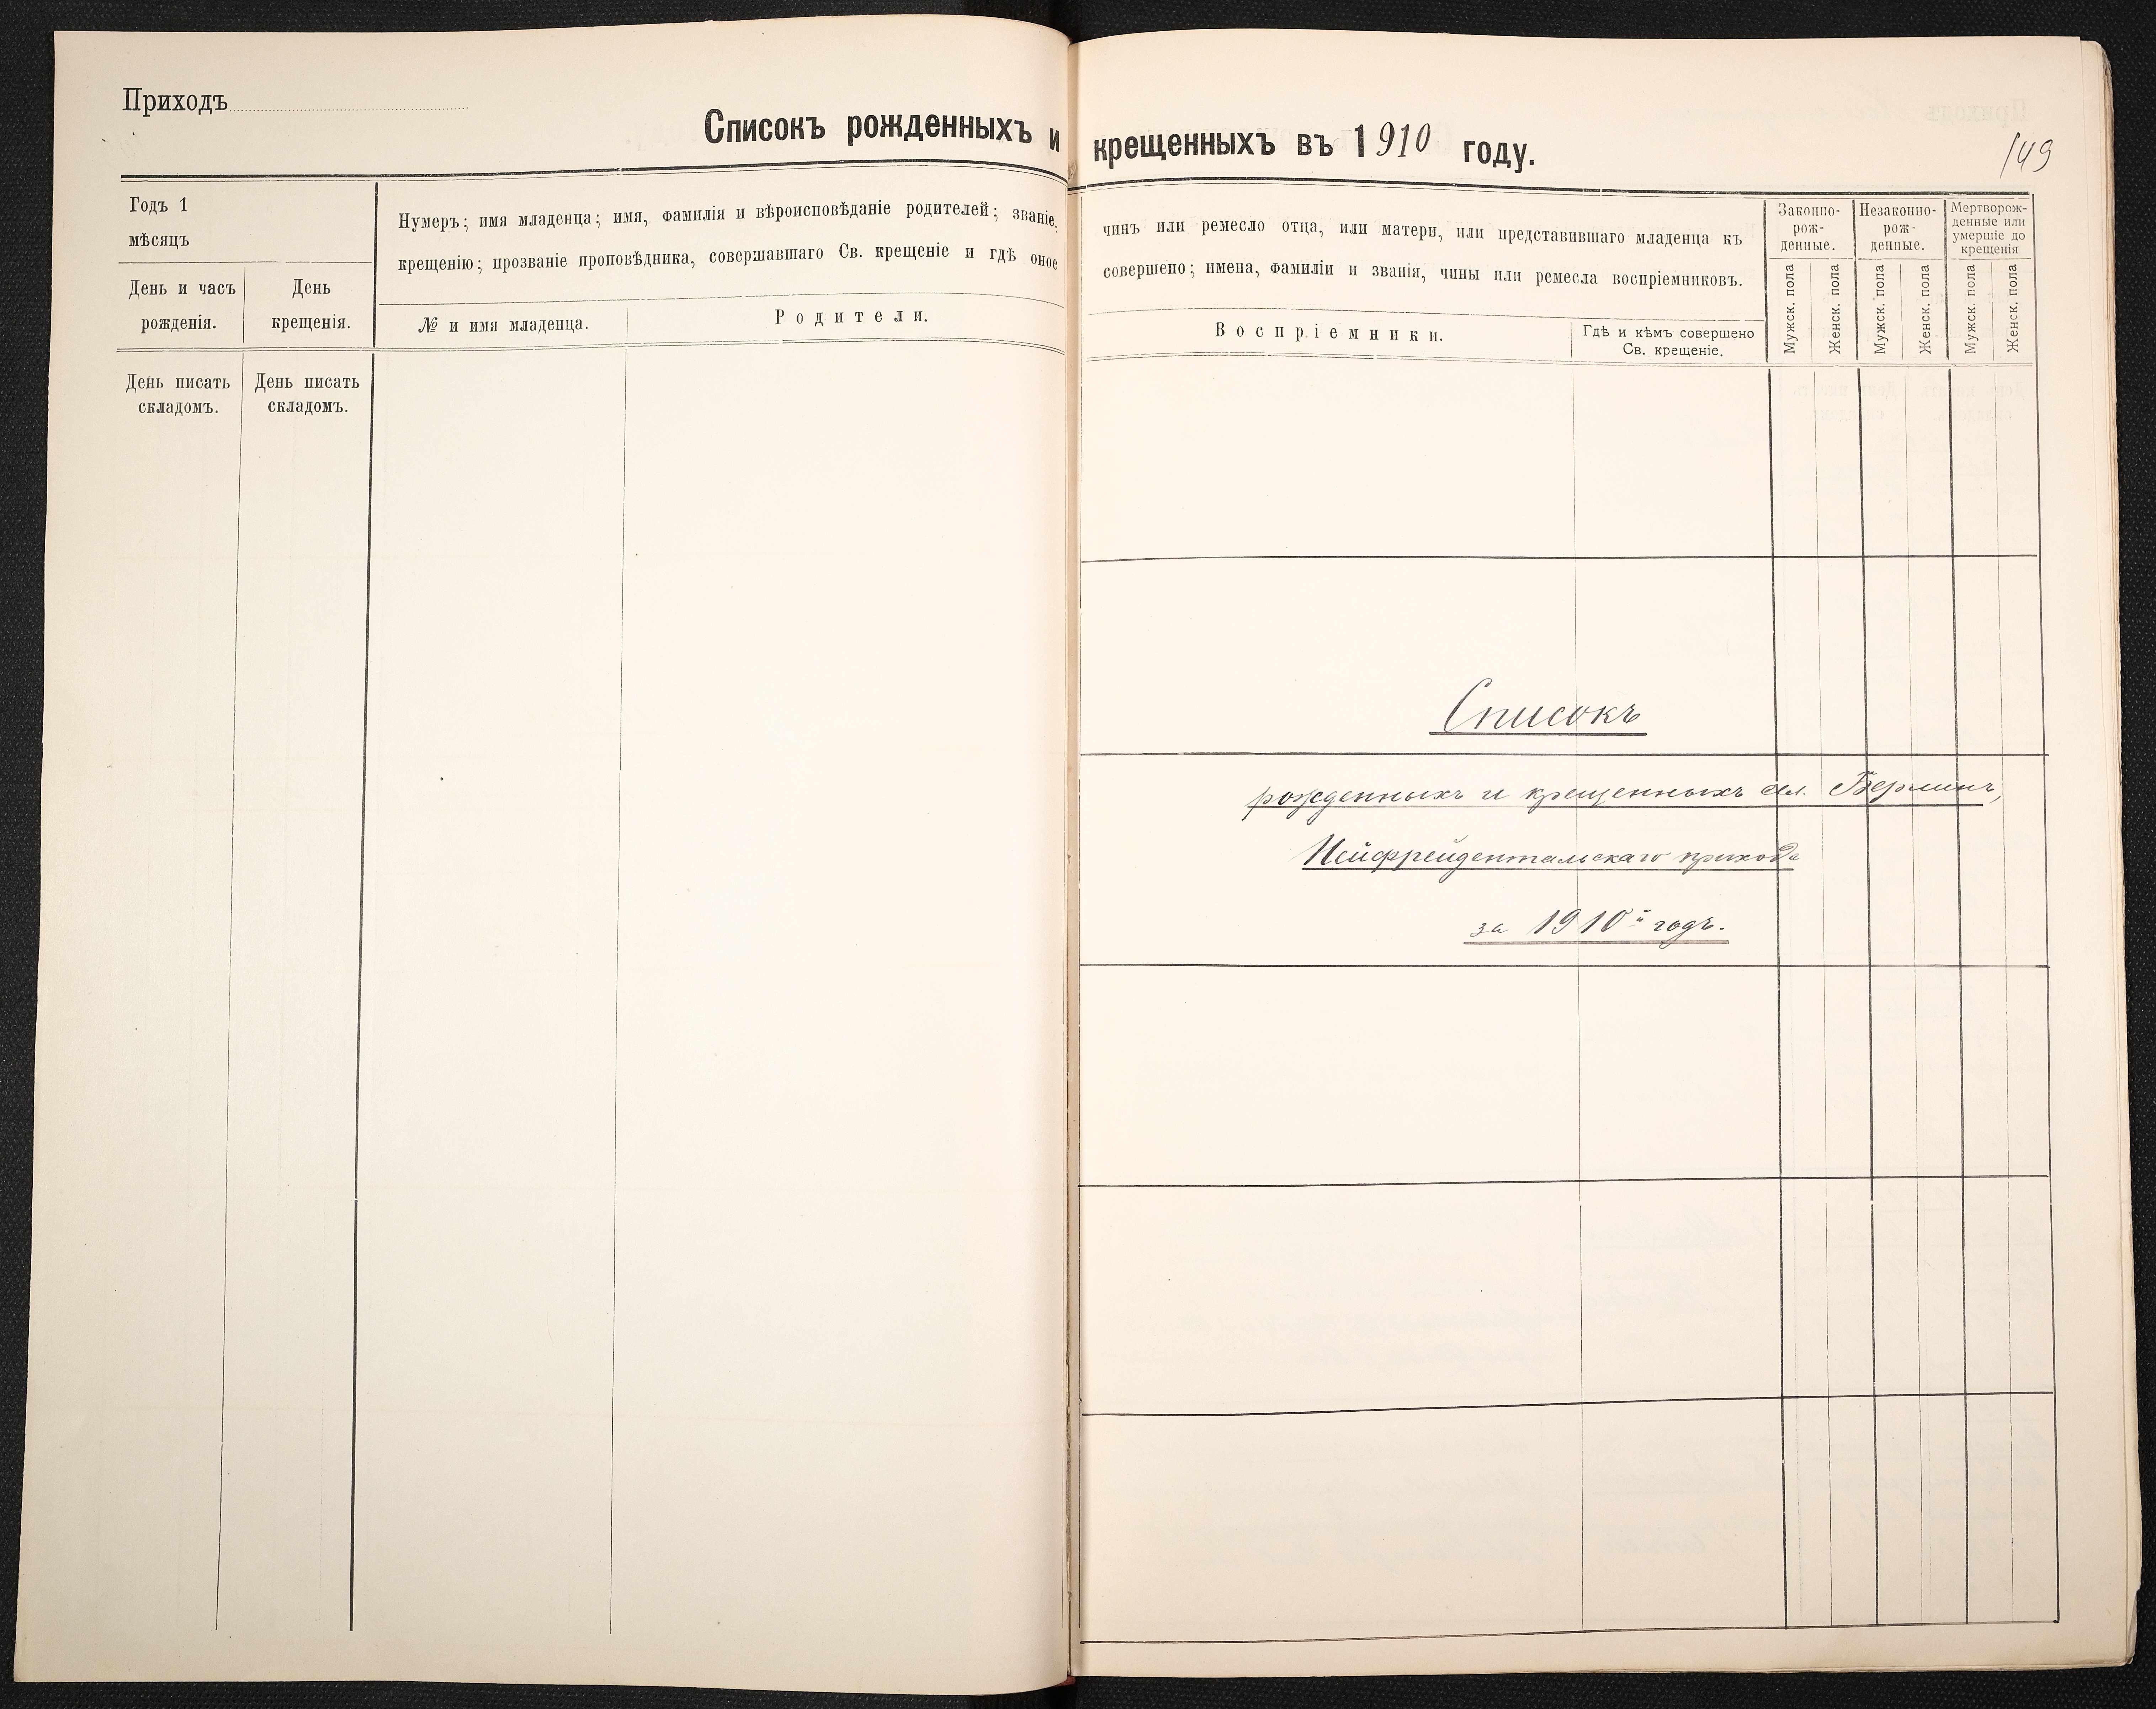 Приходъ
Списокъ рожденныхъ и крещенныхъ въ 1910 году.
149
Годъ 1
мѣсяцъ
День и часъ
рожденія.
День
крещенія.
Нумеръ; имя младенца; имя, фамилія и вѣроисповѣданіе родителей; званіе, чинъ или ремесло отца, или матери, или представившаго младенца къ
крещенію; прозваніе проповѣдника, совершавшаго Св. крещеніе и гдѣ оное совершено; имена, фамиліи и званія, чины или ремесла воспріемниковъ.
№ и имя младенца.
Родители.
Воспріемники.
Гдѣ и кѣмъ совершено
Св. крещеніе.
Законно-
рож-
денные.
Незаконно-
рож-
денные.
Мертворож-
денные или
умершіе до
крещенія
Мужск. пола
Женск. пола
Мужск. пола
Женск. пола
Мужск. пола
Женск. пола
День писать
складомъ.
День писать
складомъ.
Списокъ
рожденныхъ и крещенныхъ Берлинъ,
Нейфрейдентальскаго прихода
за 1910й годъ.